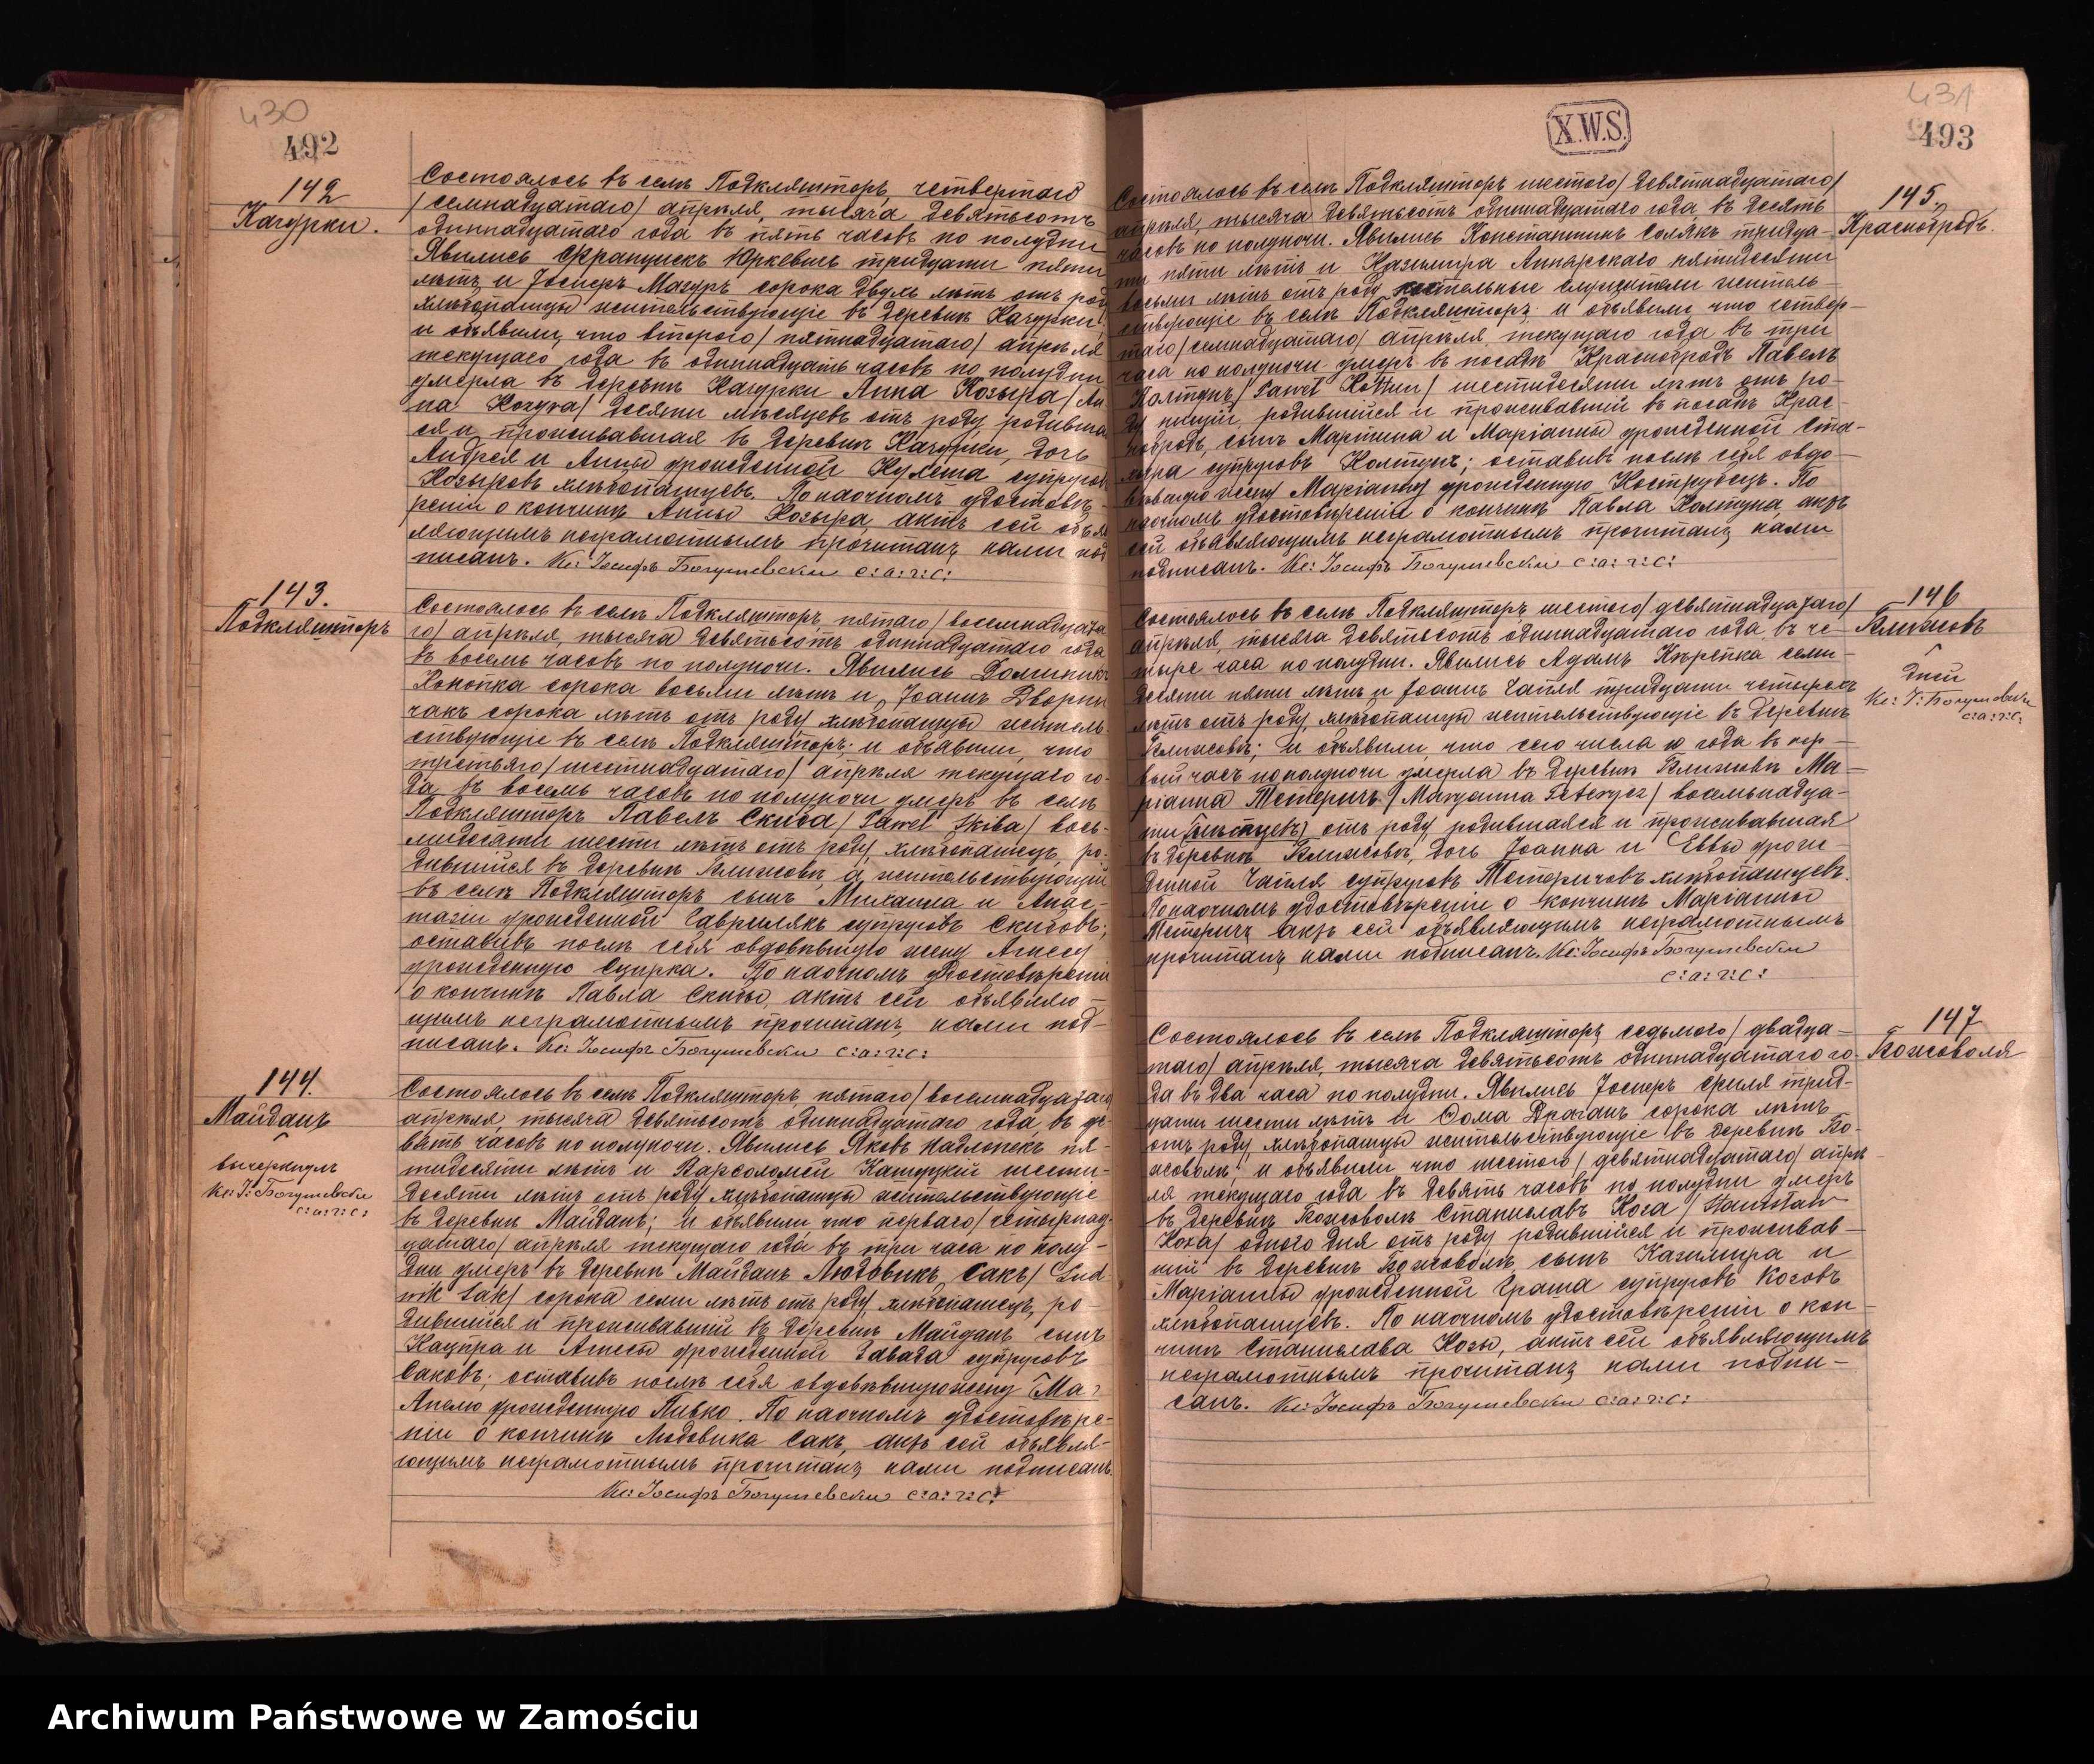 430
492
142
Качурки.
Состоялось въ селѣ Подкляшторъ, четвертаго
/семнадцатаго/ апрѣля, тысяча девятьсотъ
одиннадцатаго года въ пять часовъ по полудни
Явились Францискъ Юркевичъ тридцати пяти
лѣтъ и Іосифъ Мазуръ сорока двухъ лѣтъ отъ роду
хлѣбопашцы жительствующіе въ деревнѣ Качурки
и объявили, что второго /пятнадцатаго/ апрѣля
текущаго года въ одиннадцать часовъ по полудни
умерла въ деревнѣ Качурки Анна Козыра /An
na Kozyra/ десяти мѣсяцевъ отъ роду родивша
ся и проживавшая въ деревнѣ Качурки, дочь
Андрея и Анны урожденной супруговъ
Козыровъ хлѣбопашцевъ. По наочномъ удостовѣ-
реніи о кончинѣ Анны Козыра, актъ сей объя
вляющимъ неграмотнымъ прочитанъ, нами под
писанъ. Кс: Іосифъ Богушевски с:а:г:с:
143.
Подкляшторъ
Состоялось въ селѣ Подкляшторъ, пятаго /восемнадцата
го/ апрѣля, тысяча девятьсотъ одиннадцатаго года
въ восемь часовъ по полуночи. Явились Доминикъ
Конопка сорока восьми лѣтъ и Іоаннъ Дворни
чакъ сорока лѣтъ отъ роду хлѣбопашцы житель
ствующіе въ селѣ Подкляшторъ; и объявили, что
третьяго /шестнадцатаго/ апрѣля текущаго го-
да въ восемь часовъ по полуночи умеръ въ селѣ
Подкляшторъ Павелъ Скиба /Paweł Skiba/ вось-
мидесяти шести лѣтъ отъ роду, хлѣбопашецъ, ро-
дившійся въ деревнѣ Близсовъ, а жительствующій
въ селѣ Подкляшторъ сынъ Михаила и Анас-
тазіи урожденной Гаврилякъ супруговъ Скибовъ;
оставивъ послѣ себя овдовѣвшую жену Агнесу
урожденную Цупрка. По наочномъ удостовѣреніи
о кончинѣ Павла Скибы, актъ сей объявляю-
щимъ неграмотнымъ прочитанъ, нами под-
писанъ. Кс: Іосифъ Богушевски с:а:г:с:
144.
Майданъ
вычеркнулъ
Кс: І: Богушевски
с:а:г:с:
Состоялось въ селѣ Подкляшторъ, пятаго /восемнадцатаго
апрѣля, тысяча девятьсотъ одиннадцатаго года, въ де-
вять часовъ по полуночи. Явились Яковъ Надлонекъ пя-
тидесяти лѣтъ и Варѳоломей Катуцкій шести-
десяти лѣтъ отъ роду хлѣбопашцы жительствующіе
въ деревнѣ Майданъ; и объявили что перваго /четырнад-
цатаго/ апрѣля текущаго года въ три часа по полу-
дни умеръ въ деревнѣ Майданъ Людовикъ Сакъ /Lud-
wik Sak/ сорока семи лѣтъ отъ роду, хлѣбопашецъ, ро-
дившійся и проживавшій въ деревнѣ Майданъ сынъ
Кацпра и Агнесы урожденной Завада супруговъ
Саковъ; оставивъ послѣ себя овдовѣвшую жену Ма-
Анелю урожденную Пивко. По наочномъ удостовѣре-
ніи о кончинѣ Людовика Сакъ, актъ сей объявля-
ющимъ неграмотнымъ прочитанъ нами подписанъ.
Кс: Іосифъ Богушевски с:а:г:с:
X.W.S.
431
493
145.
Краснобродъ.
Состоялось въ селѣ Подкляшторъ шестого /девятнадцатаго/
апрѣля, тысяча девятьсотъ одиннадцатаго года, въ десять
часовъ по полуночи. Явились Константинъ Солякъ тридца-
ти пяти лѣтъ и Казимира пятидесяти
восьми лѣтъ отъ роду, костельные служители житель-
ствующіе въ селѣ Подкляшторъ; и объявили что четвер-
таго /семнадцатаго/ апрѣля текущаго года въ три
часа по полуночи умеръ въ посадѣ Краснобродъ Павелъ
Колтунъ /Paweł Kołtun/ шестидесяти лѣтъ отъ ро-
ду нищій, родившійся и проживавшій въ посадѣ Крас-
нобродъ, сынъ Мартина и Маріанны урожденной Ста-
супруговъ Колтунъ; оставивъ послѣ себя овдо-
вѣвшую жену Маріанну урожденную Кострубецъ. По
наочномъ удостовѣреніи о кончинѣ Павла Колтуна, актъ
сей объявляющимъ неграмотнымъ прочитанъ, нами
подписанъ. Кс: Іосифъ Богушевски с:а:г:с:
146
Близсовъ
дней
Кс: І: Богушевски
с:а:г:с:
Состоялось въ селѣ Подкляшторъ, шестого /девятнадцатаго/
апрѣля, тысяча девятьсотъ одиннадцатаго года, въ че-
тыре часа по полудни. Явились Адамъ Кѣрепка семи-
десяти пяти лѣтъ и Іоаннъ Чапля тридцати четырехъ
лѣтъ отъ роду, хлѣбопашцы жительствующіе въ деревнѣ
Близсовъ; и объявили, что сего числа и года въ пер-
вый часъ по полуночи умерла въ деревнѣ Близсовъ Ма-
ріанна Тетеричъ /Maryanna Teterycz/ восемьнадца-
ти /мѣсяцевъ/ отъ роду родившаяся и проживавшая
въ деревнѣ Близсовъ, дочь Іоанна и Еввы урож-
денной Чапля супруговъ Тетеричовъ хлѣбопашцевъ.
По наочномъ удостовѣреніи о кончинѣ Маріанны
Тетеричъ актъ сей объявляющимъ неграмотнымъ
прочитанъ нами подписанъ. Кс: Іосифъ Богушевски
с:а:г:с:
147
Божоволя
Состоялось въ селѣ Подкляшторъ, седьмого /двадца-
таго/ апрѣля, тысяча девятьсотъ одиннадцатаго го-
да въ два часа по полудни. Явились Іосифъ трид-
цати шести лѣтъ и Ѳома Драганъ сорока лѣтъ
отъ роду, хлѣбопашцы жительствующіе въ деревнѣ Бо-
жоволѣ; и объявили что шестого /девятнадцатаго/ апрѣ-
ля текущаго года въ девять часовъ по полудни умеръ
въ деревнѣ Божоволѣ Станиславъ Коза /Stanisław
Koza/ одного дня отъ роду родившійся и проживав-
шій въ деревнѣ Божоволѣ, сынъ Казимира и
Маріанны урожденной Граша супруговъ Козовъ
хлѣбопашцевъ. По наочномъ удостовѣреніи о кон-
чинѣ Станислава Козы, актъ сей объявляющимъ
неграмотнымъ прочитанъ нами подпи-
санъ. Кс: Іосифъ Богушевски с:а:г:с:
Archiwum Państwowe w Zamościu